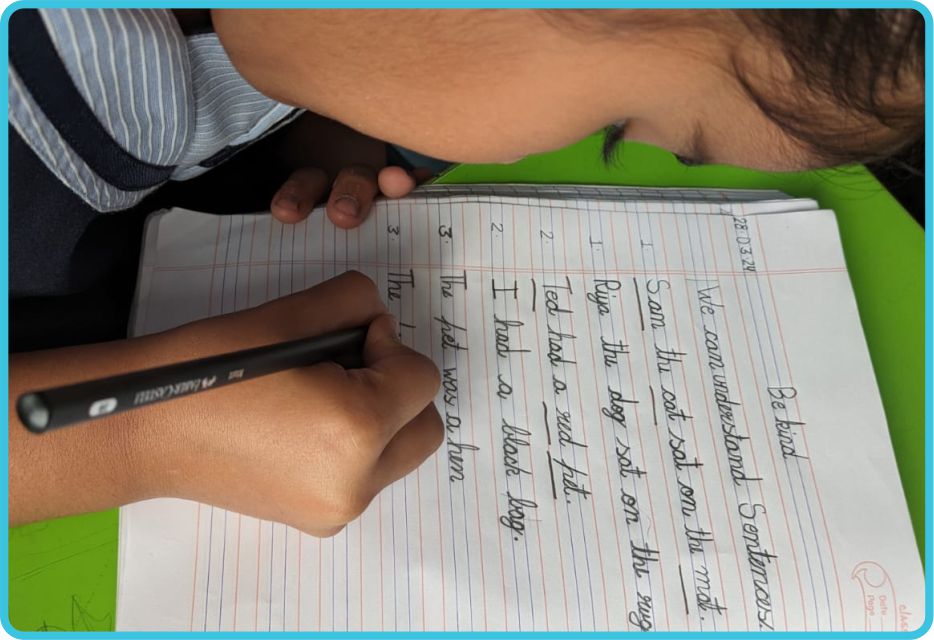 28.03.24
Be kind
We can understand Sentences.
1. Sam the cat sat on the mat.
1. Riya the dog sat on the rug
2. Ted had a red pet.
2. I had a black bag.
3. The pet was a hen
3. The
class
Date
Page
FABER-CASTELL